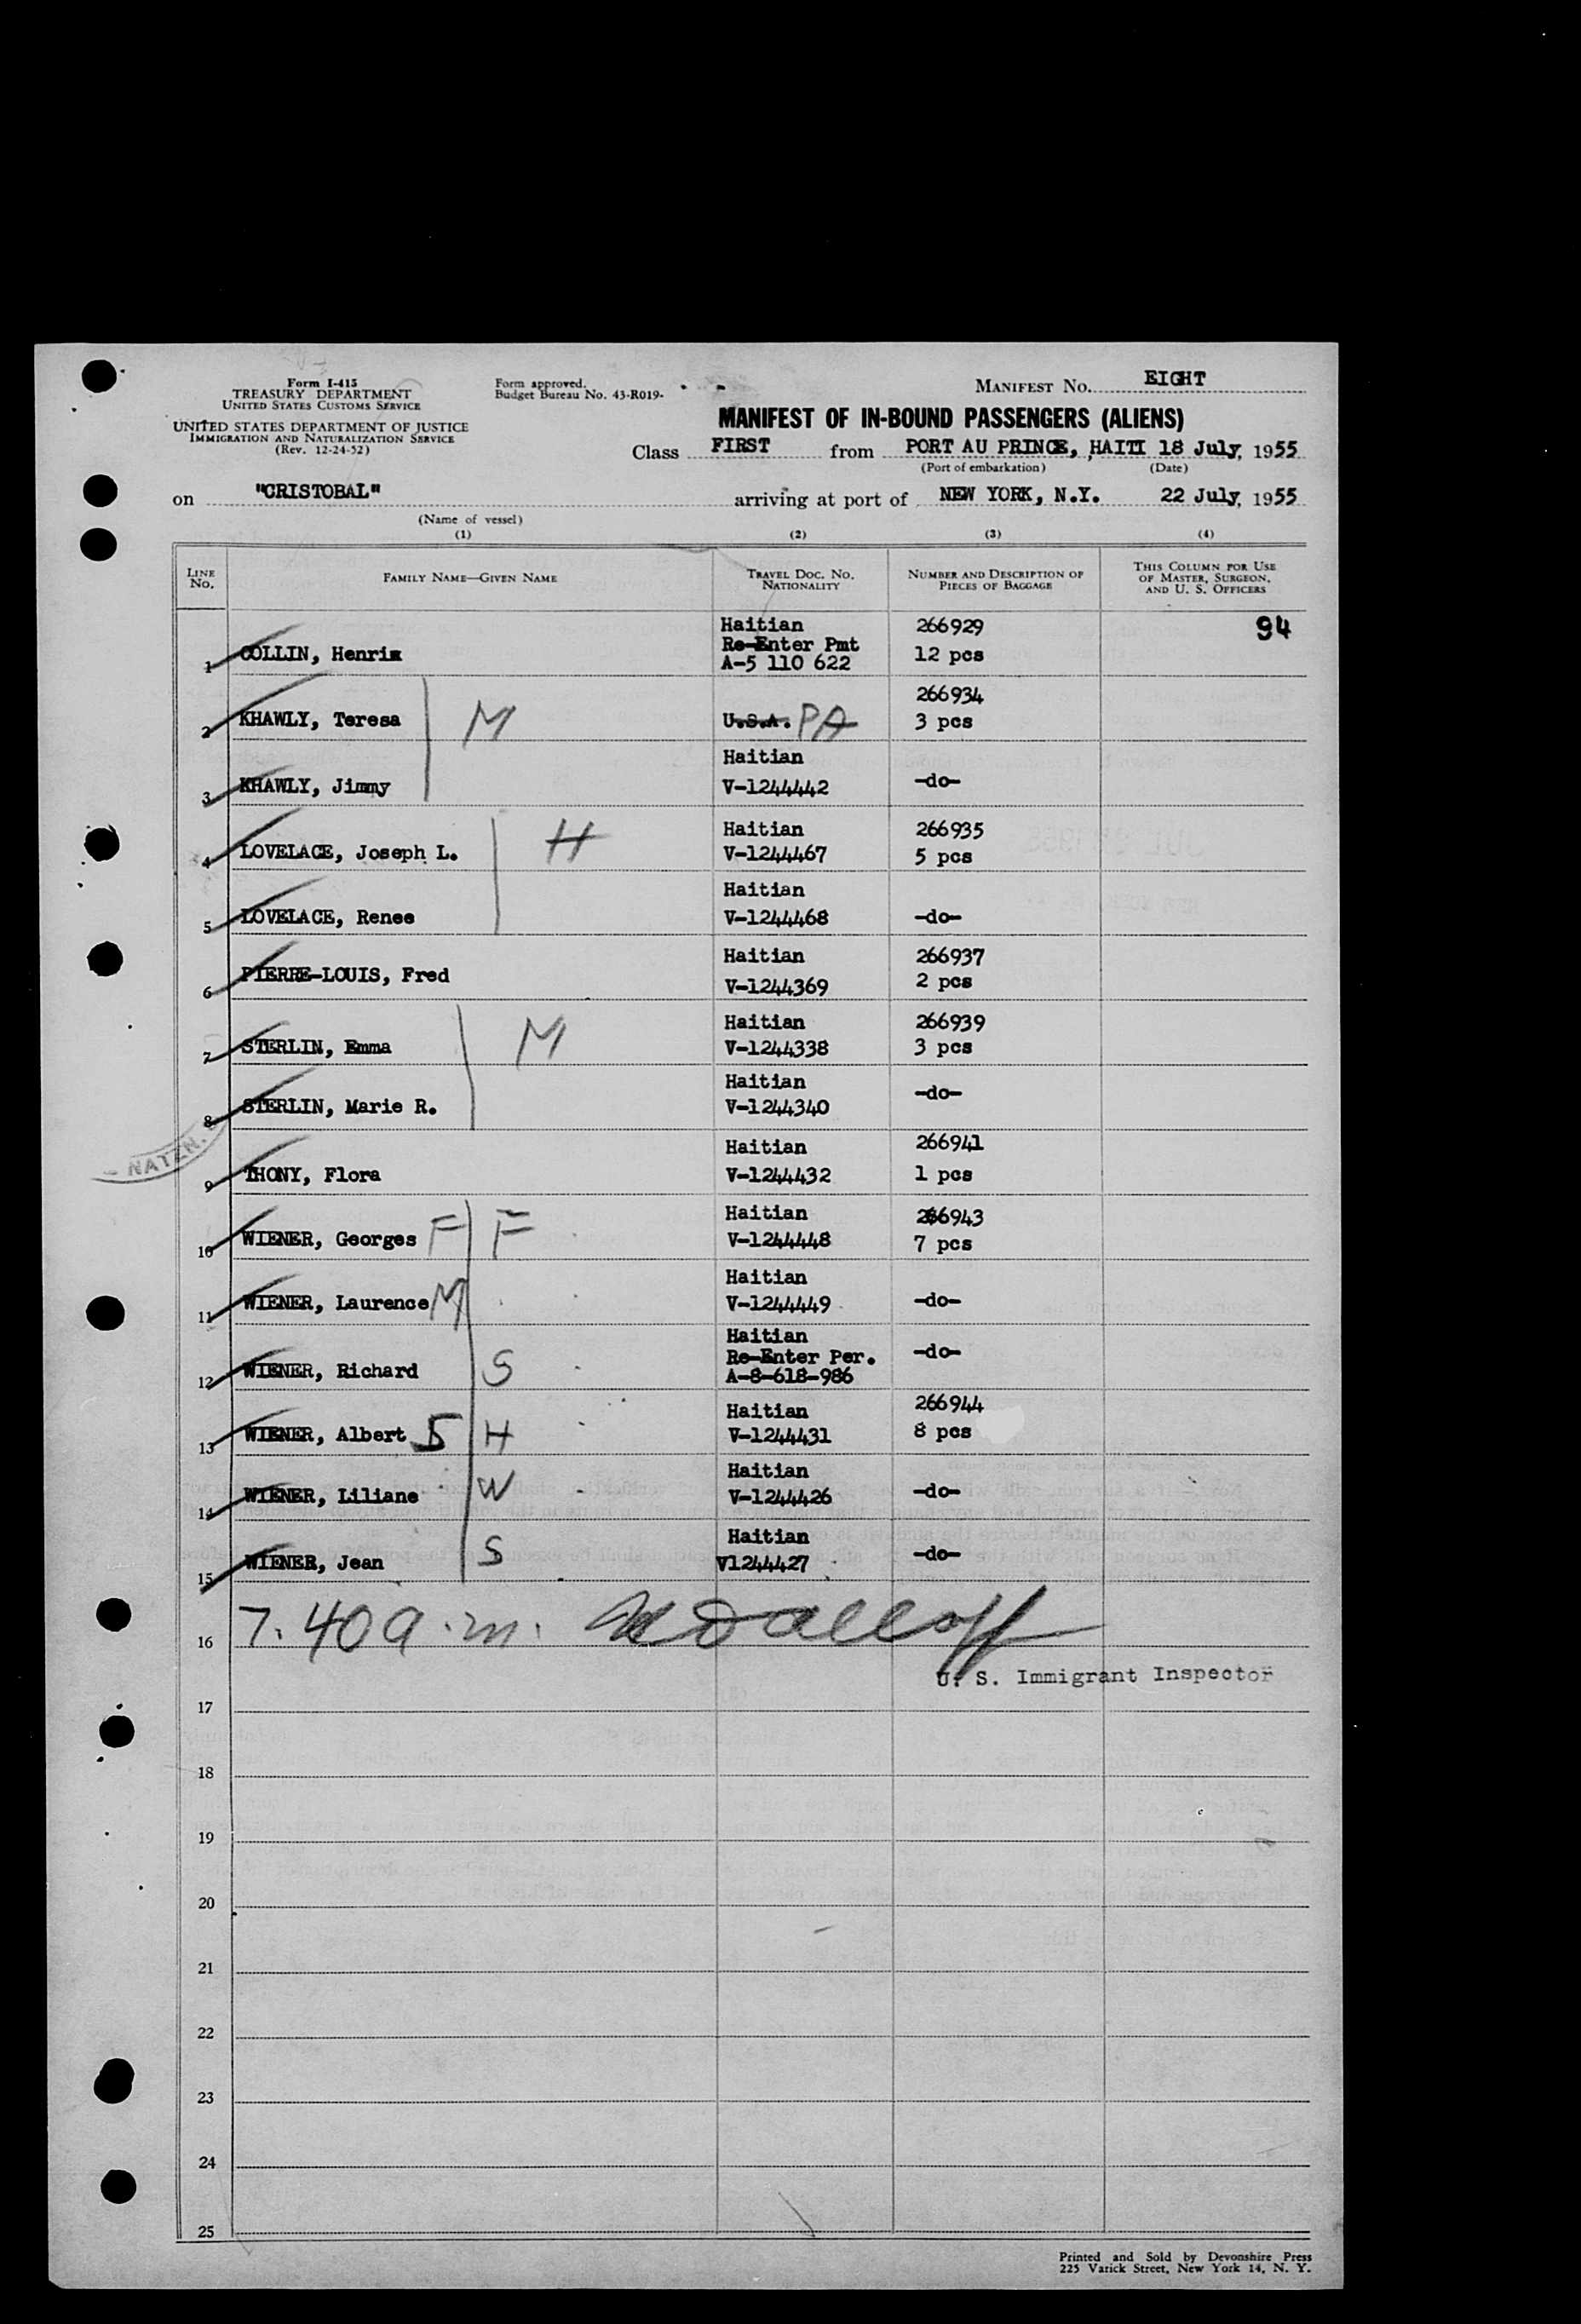 Form I-415
TREASURY DEPARTMENT
UNITED STATES CUSTOMS SERVICE
UNITED STATES DEPARTMENT OF JUSTICE
IMMIGRATION AND NATURALIZATION SERVICE
(Rev. 12-24-52)
Form approved.
Budget Bureau No. 43-R019-
MANIFEST NO. EIGHT
MANIFEST OF IN-BOUND PASSENGERS (ALIENS)
Class FIRST from PORT AU PRINCE, HAITI 18 July, 1955
(Port of embarkation) (Date)
on "CRISTOBAL" arriving at port of NEW YORK, N.Y. 22 July, 1955
(Name of vessel)
(1) (2) (3) (4)
LINE NO. FAMILY NAME—GIVEN NAME TRAVEL DOC. NO. NATIONALITY NUMBER AND DESCRIPTION OF PIECES OF BAGGAGE THIS COLUMN FOR USE OF MASTER, SURGEON, AND U. S. OFFICERS
Haitian 266929 94
Re-Enter Pmt
1 COLLIN, Henrix A-5 110 622 12 pcs
266934
2 KHAWLY, Teresa M U.S.A. PA 3 pcs
Haitian
3 KHAWLY, Jimmy V-1244442 -do-
Haitian 266935
4 LOVELACE, Joseph L. H V-1244467 5 pcs
Haitian
5 LOVELACE, Renee V-1244468 -do-
Haitian 266937
6 PIERRE-LOUIS, Fred V-1244369 2 pcs
Haitian 266939
7 STERLIN, Emma M V-1244338 3 pcs
Haitian
8 STERLIN, Marie R. V-1244340 -do-
NATZN.
Haitian 266941
9 THONY, Flora V-1244432 1 pcs
Haitian 266943
10 WIENER, Georges F F V-1244448 7 pcs
Haitian
11 WIENER, Laurence M V-1244449 -do-
Haitian
Re-Enter Per.
12 WIENER, Richard S A-8-618-986 -do-
Haitian 266944
13 WIENER, Albert S H V-1244431 8 pcs
Haitian
14 WIENER, Liliane W V-1244426 -do-
Haitian
15 WIENER, Jean S V1244427 -do-
16 7.40 a.m.
U. S. Immigrant Inspector
17
18
19
20
21
22
23
24
25
Printed and Sold by Devonshire Press
225 Varick Street, New York 14, N. Y.